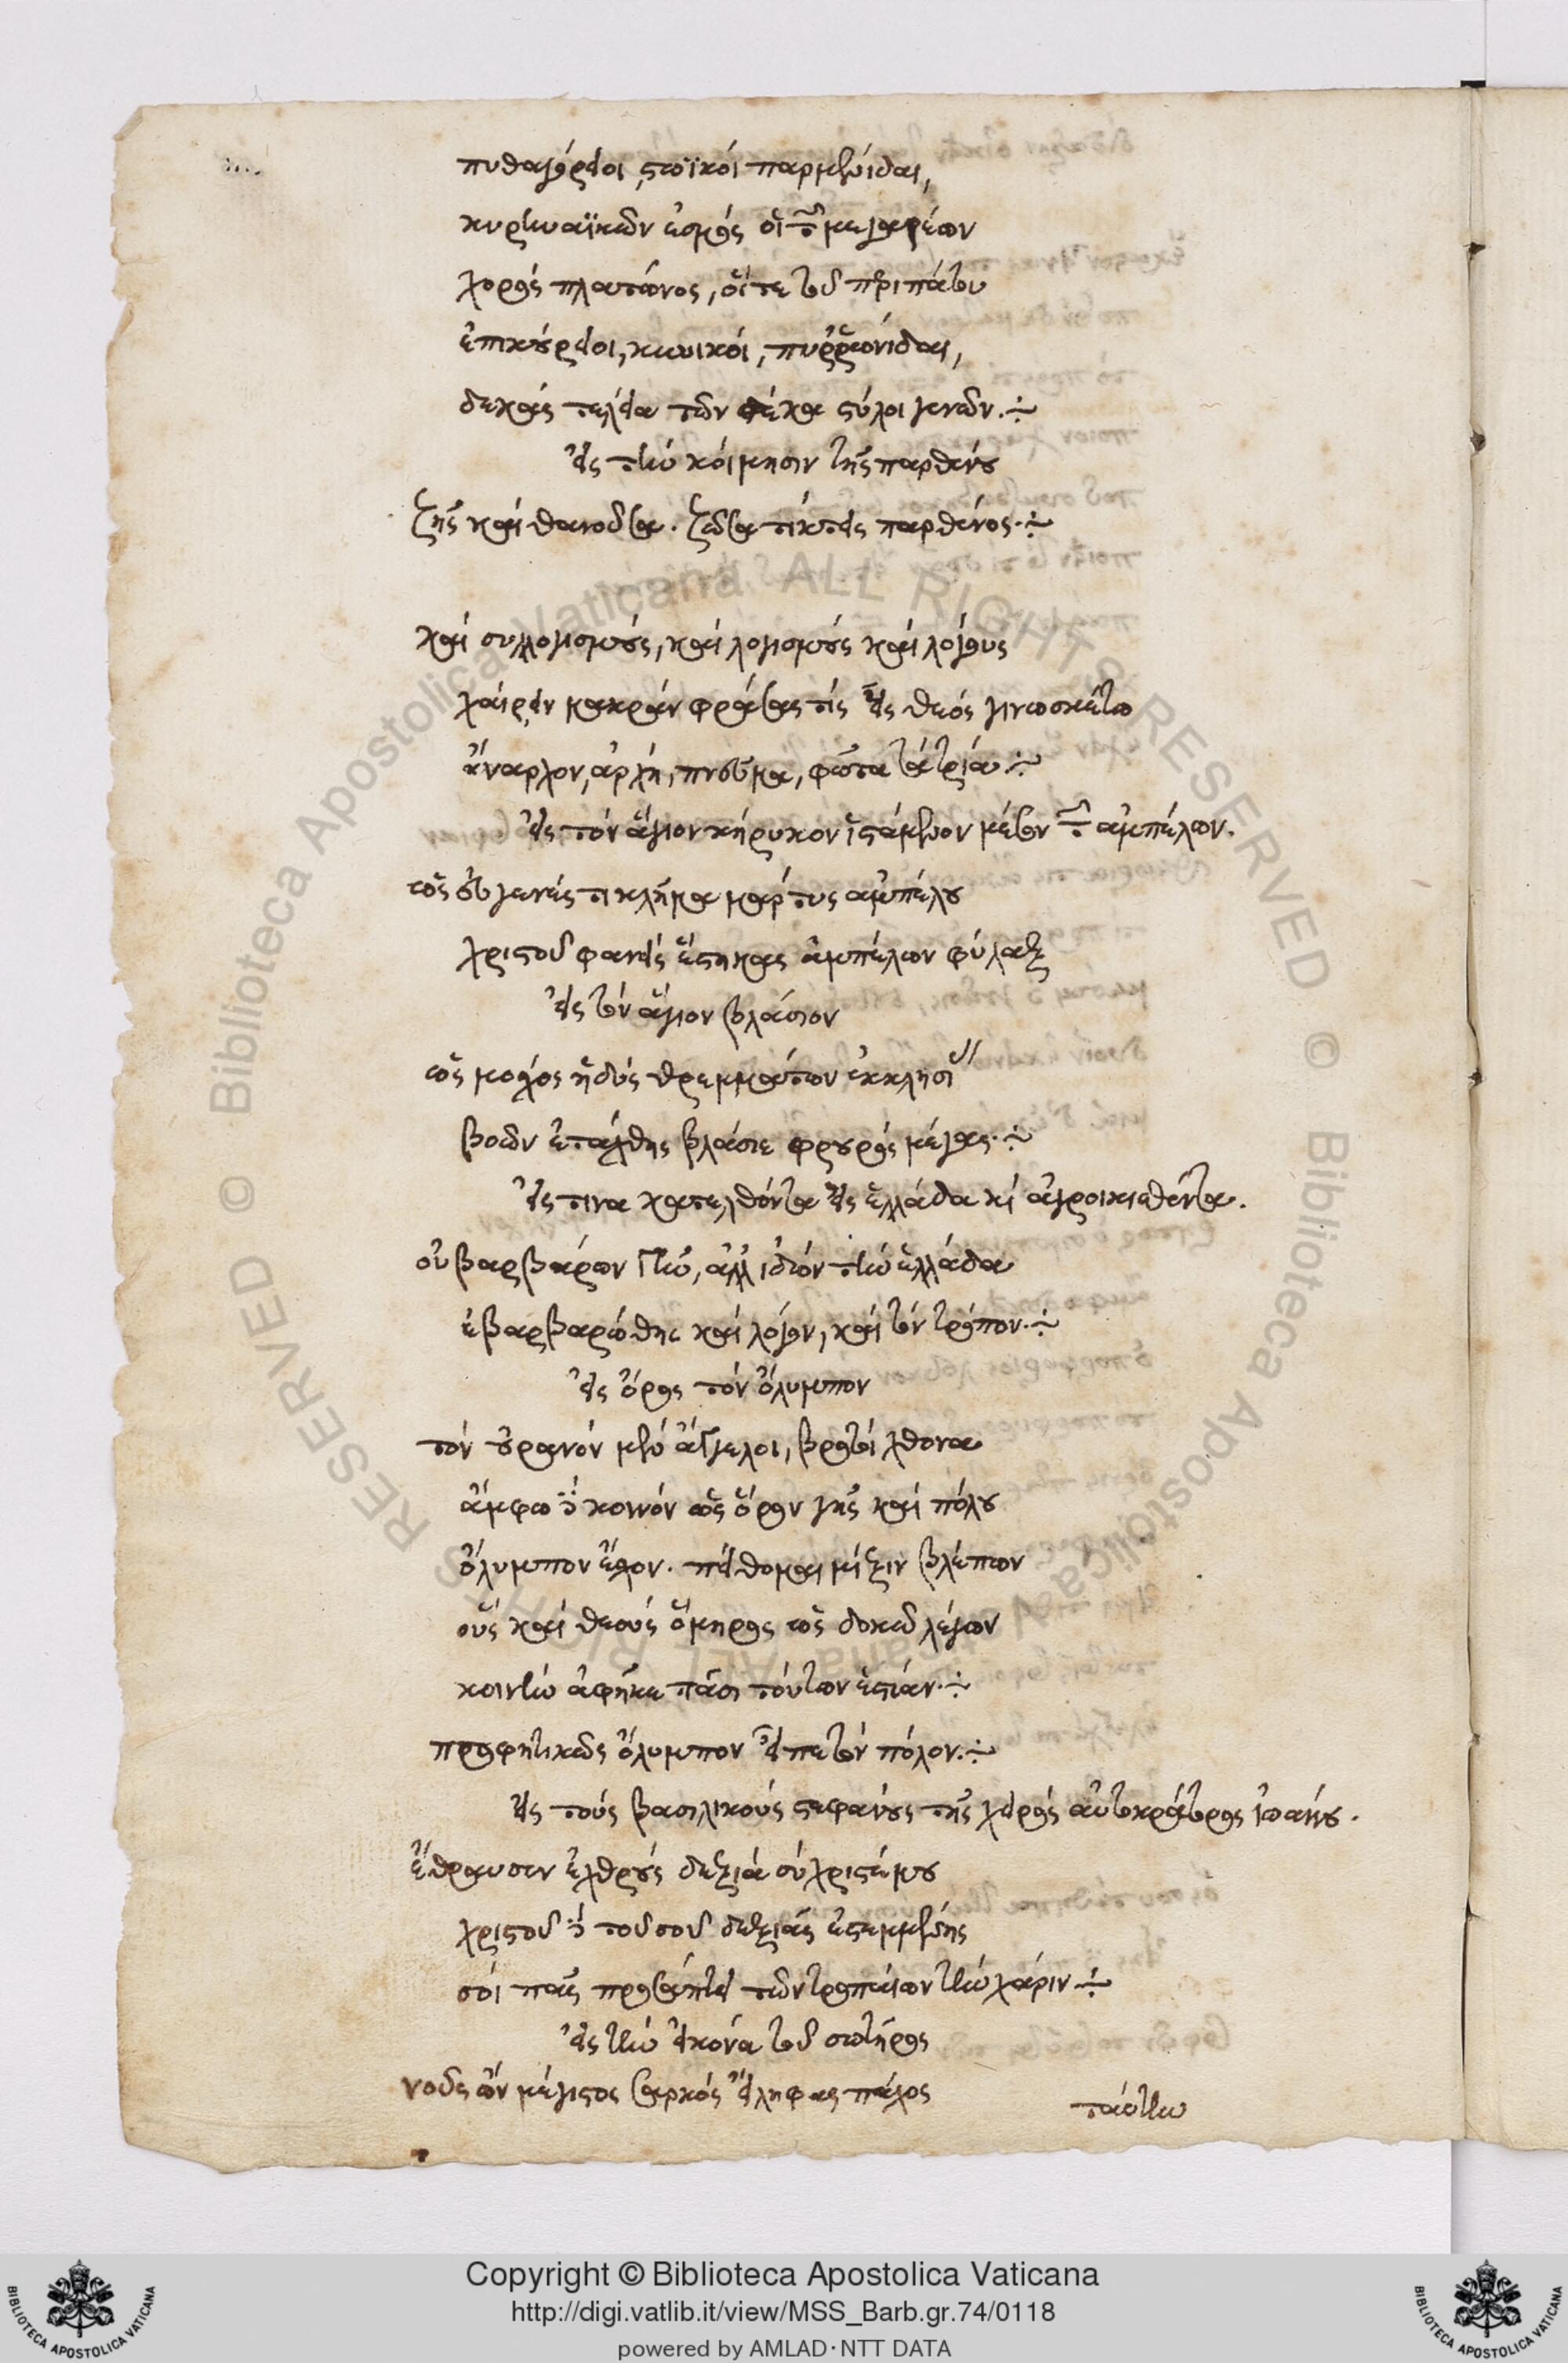 πυθαγόρειοι, στοϊκοί παρμενίδαι,
κυρηναϊκῶν ἑσμός οἱ τῶν μεγαρέων
χορός πλάτωνος, οἵ τε τοῦ περιπάτου
ἐπικούρειοι, κυνικοί, πυῤῥωνίδαι,
δεκάς τελεία τῶν δέκα στύλοι γενῶν.
εἰς τὴν κοίμησιν τῆς παρθένου
ζῆς καί θανοῦσα. ζῶσα τίκτεις παρθένος.
καί συλλογισμούς, καί λογισμούς καί λόγους
χαίρειν μακράν φράσας τίς εἷς θεός γινωσκέτω
ἄναρχον, ἀρχή, πνεῦμα, φῶτα τά τρία
εἰς τόν ἅγιον κήρυκον ἱστάμενον μέσον τῶν ἀμπέλων.
ὡς εὐγενές τι κλῆμα μάρτυς ἀμπέλου
χριστοῦ φανείς ἕστηκας ἀμπέλων φύλαξ
εἰς τόν ἅγιον βλάσιον
ὡς μοχός ἡδύς θρεμμάτων ἐκκλησι
βοῶν ἐτάχθης βλάσιε φρουρός μέγας.
εἰς τινα κατελθόντα εἰς ἑλλάδα κἀ ἀγροικισθέντα.
οὐ βαρβάρων γῆν, ἀλλ ἰδών τὴν ἑλλάδα
ἐβαρβαρώθης καί λόγον, καί τόν τρόπον.
εἰς ὄρος τόν ὄλυμπον
τόν οὐρανόν μέν ἄγγελοι, βροτοί χθονα
ἄμφω δέ κοινόν ὡς ὅρον γῆς καί πόλου
ὄλυμπον ἔχον. πείθομαι μίξιν βλέπων
οὕς καί θεούς ὅμηρος ὡς δοκῶ λέγων
κοινὴν ἀφῆκε πᾶσι τούτων ἑστίαν.
προφητικῶς ὄλυμπον εἶπε τόν πόλον.
εἰς τούς βασιλικούς στεφάνους τῆς χειρός αὐτοκράτορος ἰωάννου.
ἔθραυσεν ἐχθρούς δεξιά σύ χριστέ μου
χριστοῦ δέ τοῦ σοῦ δεξιᾶς ἐστεμμένης
σοί πᾶς προσάπτει τῶν τροπαίων τὴν χάριν
εἰς τὴν εἰκόνα τοῦ σωτῆρος
νοῦς ὤν μέγιστος σαρκός εἴληφας πάχος
ταύτην
Copyright © Biblioteca Apostolica Vaticana
http://digi.vatlib.it/view/MSS_Barb.gr.74/0118
powered by AMLAD·NTT DATA